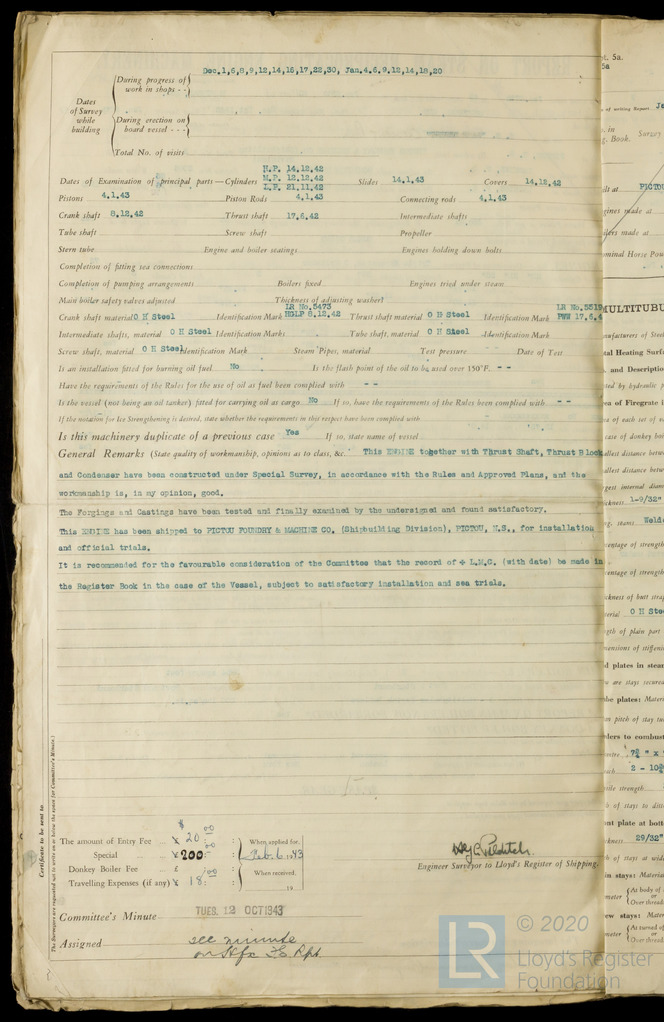 Dec.1,6,8,9,12,14,16,17,22,30, Jan.4.6,9,12,14,18,20
Dates of Survey while building
During progress of work in shops - -
During erection on board vessel - - -
Total No. of visits
Dates of Examination of principal parts—Cylinders H.P. 14.12.42 M.P. 12.12.42 L.P. 21.11.42 Slides 14.1.43 Covers 14.12.42
Pistons 4.1.43 Piston Rods 4.1.43 Connecting rods 4.1.43
Crank shaft 8.12.42 Thrust shaft 17.6.42 Intermediate shafts
Tube shaft Screw shaft Propeller
Stern tube Engine and boiler seatings Engines holding down bolts
Completion of fitting sea connections
Completion of pumping arrangements Boilers fixed Engines tried under steam
Main boiler safety valves adjusted Thickness of adjusting washers
Crank shaft material O H Steel Identification Mark LR No.5473 HGLP 8.12.42 Thrust shaft material O H Steel Identification Mark LR No.5519 PWW 17.6.4
Intermediate shafts, material O H Steel Identification Marks Tube shaft, material O H Steel Identification Mark
Screw shaft, material O H Steel Identification Mark Steam Pipes, material Test pressure Date of Test
Is an installation fitted for burning oil fuel No Is the flash point of the oil to be used over 150°F. - -
Have the requirements of the Rules for the use of oil as fuel been complied with - -
Is the vessel (not being an oil tanker) fitted for carrying oil as cargo No If so, have the requirements of the Rules been complied with - -
If the notation for Ice Strengthening is desired, state whether the requirements in this respect have been complied with
Is this machinery duplicate of a previous case Yes If so, state name of vessel
General Remarks (State quality of workmanship, opinions as to class, &c. This ENGINE together with Thrust Shaft, Thrust Block
and Condenser have been constructed under Special Survey, in accordance with the Rules and Approved Plans, and the
workmanship is, in my opinion, good.
The Forgings and Castings have been tested and finally examined by the undersigned and found satisfactory.
This ENGINE has been shipped to PICTOU FOUNDRY & MACHINE CO. (Shipbuilding Division), PICTOU, N.S., for installation
and official trials.
It is recommended for the favourable consideration of the Committee that the record of + L.M.C. (with date) be made in
the Register Book in the case of the Vessel, subject to satisfactory installation and sea trials.
Certificate to be sent to
(The Surveyors are requested not to write on or below the space for Committee's Minute.)
The amount of Entry Fee $ 20.00 : When applied for,
Special 200.00 : Feb. 6. 1943
Donkey Boiler Fee £ : When received,
Travelling Expenses (if any) 18.00 : 19
Engineer Surveyor to Lloyd's Register of Shipping.
Committee's Minute TUES. 12 OCT 1943
Assigned see minute
on Hfx F.E. Rpt.
LR
© 2020
Lloyd's Register
Foundation
pt. 5a.
5a
PICTOU
MULTITUBU
1-9/32"
Welde
O H Stee
2 - 10
29/32"